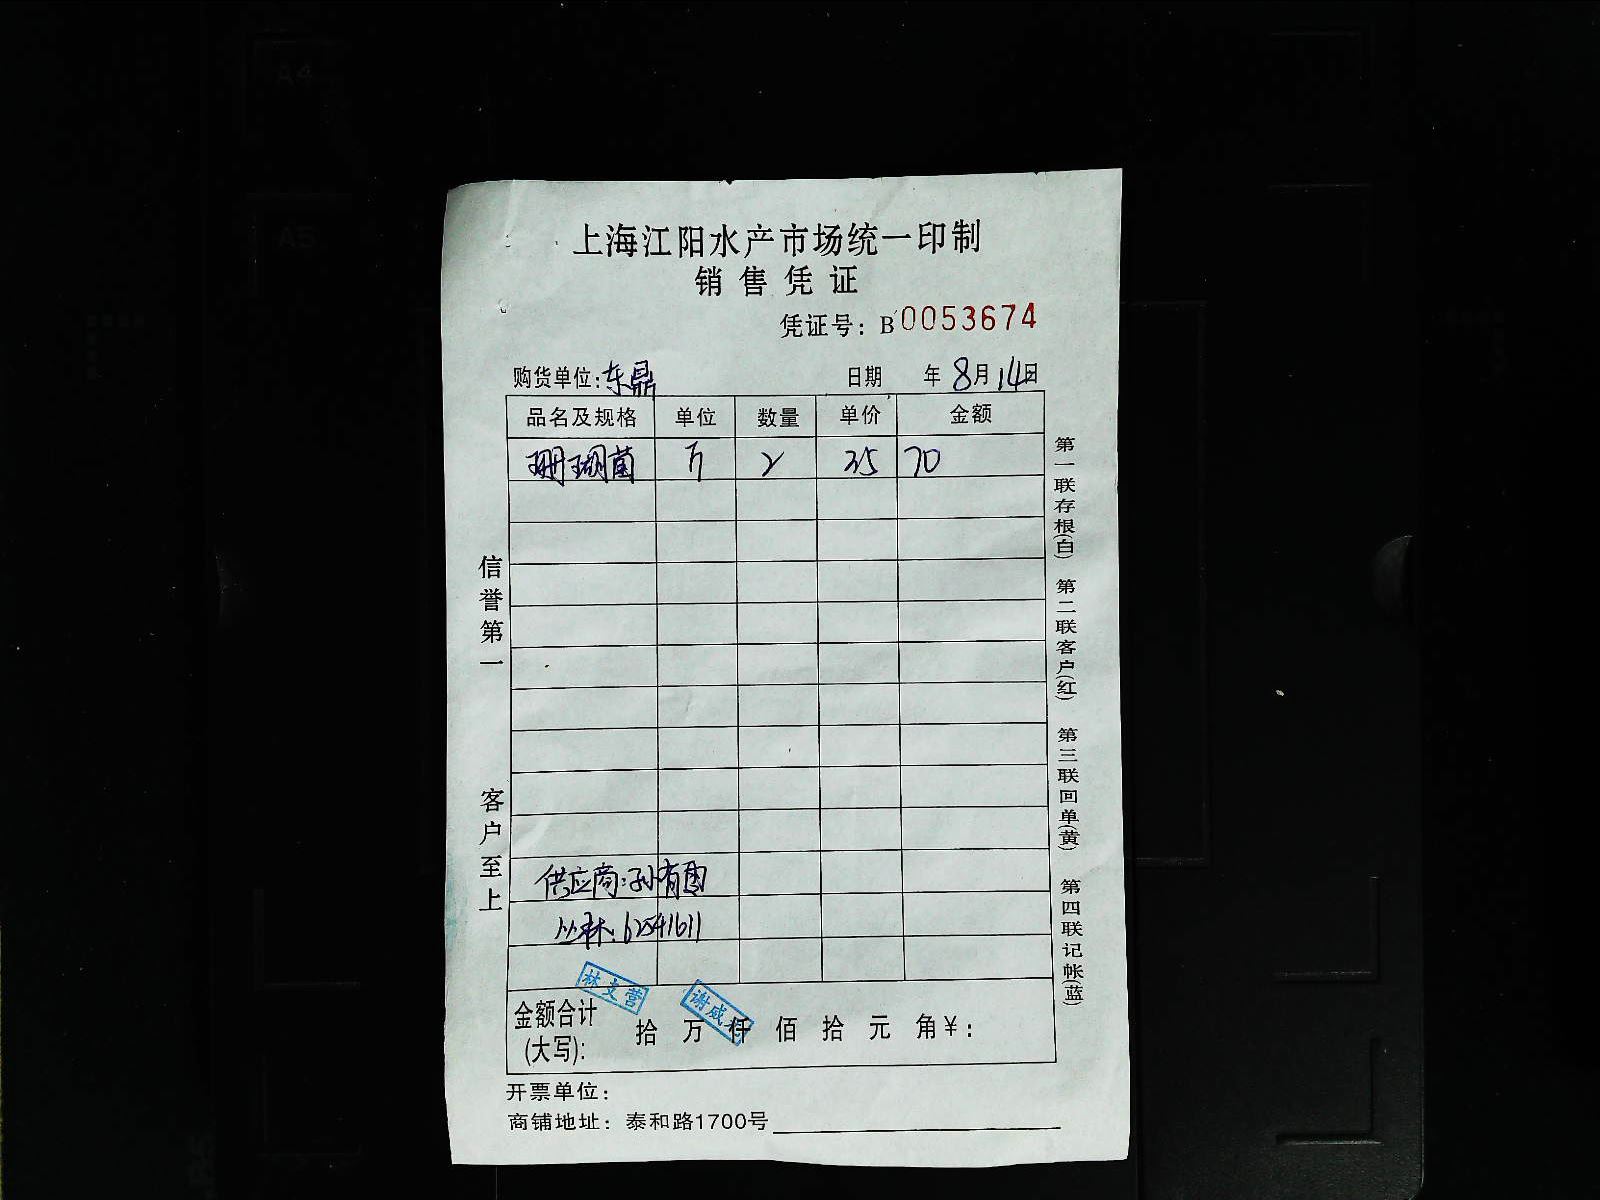 上海江阳水产市场统一印制
销售凭证
凭证号：B 0053674
购货单位：东鼎 日期 年 8月 14日
品名及规格 单位 数量 单价 金额
珊瑚菌 斤 2 35 70
供应商：孙有国
丛林：62541611
林支营
金额合计(大写)： 拾 万 仟 佰 拾 元 角 ¥：
开票单位：
商铺地址：泰和路1700号
信誉第一 客户至上
第一联存根(白) 第二联客户(红) 第三联回单(黄) 第四联记帐(蓝)
A4
A5